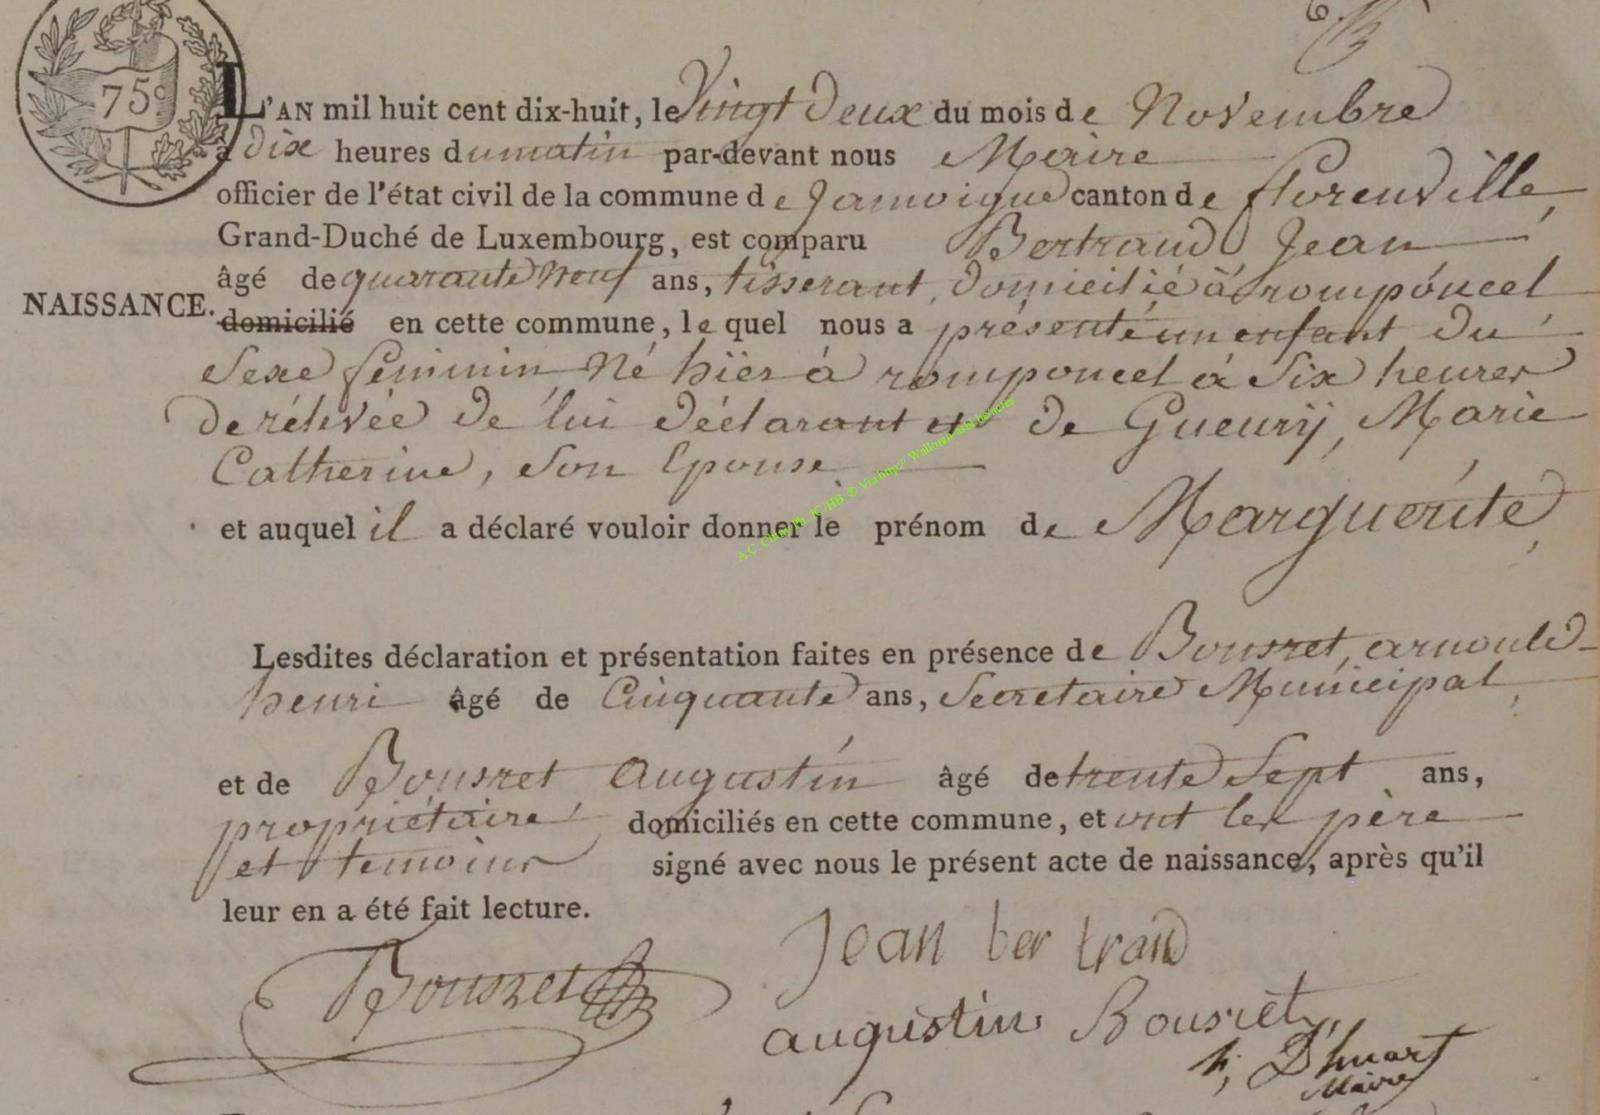 75c
L'AN mil huit cent dix-huit, le Vingt Deux du mois de Novembre
à dix heures dumatin par-devant nous Maire
officier de l'état civil de la commune de Jamoigne canton de florenville,
Grand-Duché de Luxembourg, est comparu Bertrand Jean
âgé de quarante neuf ans, tisserant, domicilié à romponcel
NAISSANCE. domicilié en cette commune, le quel nous a présenté un enfant du
Sexe féminin né hier à romponcel à Six heures
de rélevée de lui déclarant et de Gueury, Marie
Catherine, Son Epouse
et auquel il a déclaré vouloir donner le prénom de Marguerite,
Lesdites déclaration et présentation faites en présence de Bousret, arnould-
henri âgé de Cinquante ans, Secretaire Municipal,
et de Bousret Augustin âgé de trente Sept ans,
propriétaire domiciliés en cette commune, et ont les père
et temoins signé avec nous le présent acte de naissance, après qu'il
leur en a été fait lecture.
Bousret
Jean ber trand
augustin Bousret
h, D'huart
Maire